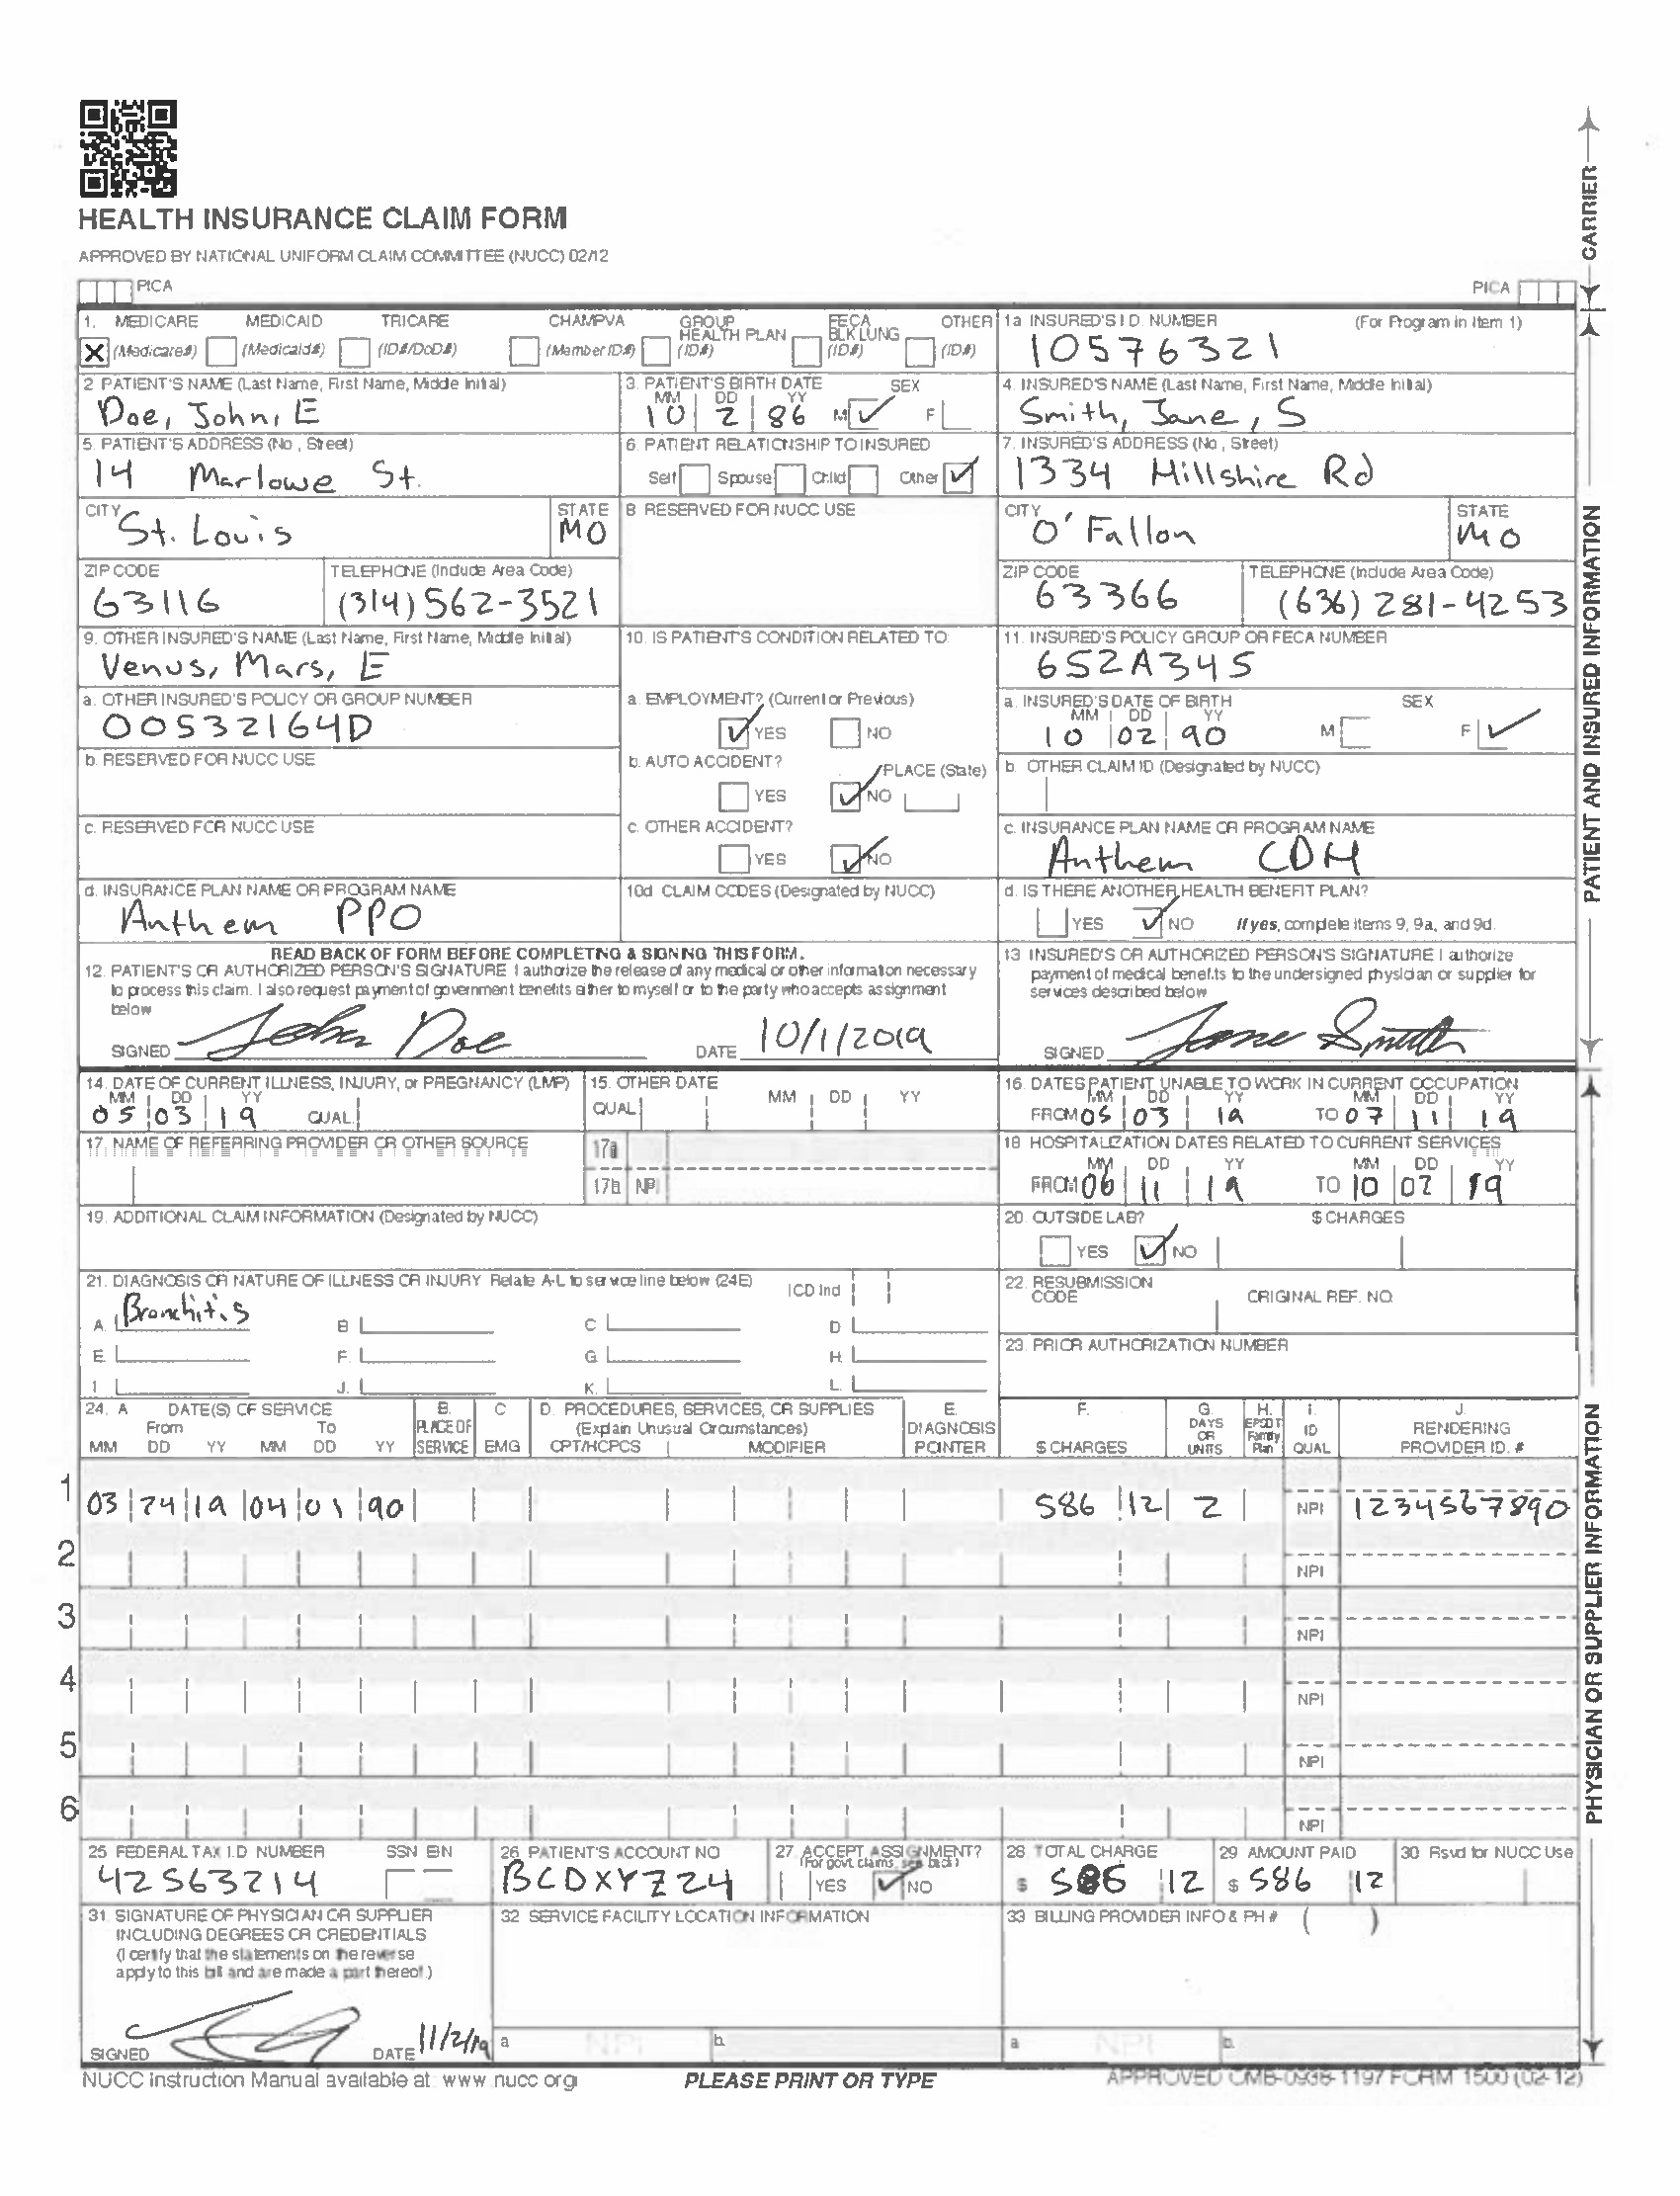 HEALTH INSURANCE CLAIM FORM
APPROVED BY NATIONAL UNIFORM CLAIM COMMITTEE (NUCC) 02/12
PICA
PICA
CARRIER
1. MEDICARE MEDICAID TRICARE CHAMPVA GROUP HEALTH PLAN FECA BLK LUNG OTHER
X (Medicare#) (Medicaid#) (ID#/DoD#) (Member ID#) (ID#) (ID#) (ID#)
1a INSURED'S I.D. NUMBER (For Program in Item 1)
10576321
2 PATIENT'S NAME (Last Name, First Name, Middle Initial)
Doe, John, E
3. PATIENT'S BIRTH DATE SEX
MM DD YY
10 2 86 M ✓ F
4. INSURED'S NAME (Last Name, First Name, Middle Initial)
Smith, Jane, S
5. PATIENT'S ADDRESS (No., Street)
14 Marlowe St.
6. PATIENT RELATIONSHIP TO INSURED
Self Spouse Child Other ✓
7. INSURED'S ADDRESS (No., Street)
1334 Hillshire Rd
CITY STATE
St. Louis MO
8 RESERVED FOR NUCC USE
CITY STATE
O'Fallon MO
ZIP CODE TELEPHONE (Include Area Code)
63116 (314) 562-3521
ZIP CODE TELEPHONE (Include Area Code)
63366 (636) 281-4253
9. OTHER INSURED'S NAME (Last Name, First Name, Middle Initial)
Venus, Mars, E
10. IS PATIENT'S CONDITION RELATED TO:
11. INSURED'S POLICY GROUP OR FECA NUMBER
652A345
a. OTHER INSURED'S POLICY OR GROUP NUMBER
00532164D
a. EMPLOYMENT? (Current or Previous)
✓ YES NO
a. INSURED'S DATE OF BIRTH SEX
MM DD YY
10 02 90 M F ✓
b. RESERVED FOR NUCC USE
b. AUTO ACCIDENT? PLACE (State)
YES ✓ NO
b. OTHER CLAIM ID (Designated by NUCC)
c. RESERVED FOR NUCC USE
c. OTHER ACCIDENT?
YES ✓ NO
c. INSURANCE PLAN NAME OR PROGRAM NAME
Anthem CDH
d. INSURANCE PLAN NAME OR PROGRAM NAME
Anthem PPO
10d CLAIM CODES (Designated by NUCC)
d. IS THERE ANOTHER HEALTH BENEFIT PLAN?
YES ✓ NO If yes, complete items 9, 9a, and 9d.
PATIENT AND INSURED INFORMATION
READ BACK OF FORM BEFORE COMPLETING & SIGNING THIS FORM.
12. PATIENT'S OR AUTHORIZED PERSON'S SIGNATURE I authorize the release of any medical or other information necessary
to process this claim. I also request payment of government benefits either to myself or to the party who accepts assignment
below
SIGNED John Doe DATE 10/1/2019
13 INSURED'S OR AUTHORIZED PERSON'S SIGNATURE I authorize
payment of medical benefits to the undersigned physician or supplier for
services described below
SIGNED Jane Smith
14. DATE OF CURRENT ILLNESS, INJURY, or PREGNANCY (LMP)
MM DD YY
05 03 19 QUAL
15. OTHER DATE
QUAL MM DD YY
16. DATES PATIENT UNABLE TO WORK IN CURRENT OCCUPATION
MM DD YY MM DD YY
FROM 05 03 19 TO 07 11 19
17. NAME OF REFERRING PROVIDER OR OTHER SOURCE
17a
17b NPI
18 HOSPITALIZATION DATES RELATED TO CURRENT SERVICES
MM DD YY MM DD YY
FROM 06 11 19 TO 10 02 19
19. ADDITIONAL CLAIM INFORMATION (Designated by NUCC)
20. OUTSIDE LAB? $ CHARGES
YES ✓ NO
21. DIAGNOSIS OR NATURE OF ILLNESS OR INJURY Relate A-L to service line below (24E) ICD Ind
A. Bronchitis B C D
E. F. G. H.
I. J. K. L.
22. RESUBMISSION CODE ORIGINAL REF. NO.
23. PRIOR AUTHORIZATION NUMBER
24. A DATE(S) OF SERVICE B. C D. PROCEDURES, SERVICES, OR SUPPLIES E. F. G. H. I. J.
From To PLACE OF (Explain Unusual Circumstances) DIAGNOSIS DAYS OR EPSDT Family ID RENDERING
MM DD YY MM DD YY SERVICE EMG CPT/HCPCS MODIFIER POINTER $ CHARGES UNITS Plan QUAL PROVIDER ID. #
1 03 24 19 04 01 90 586 12 2 NPI 1234567890
2 NPI
3 NPI
4 NPI
5 NPI
6 NPI
25 FEDERAL TAX I.D NUMBER SSN EIN
42563214
26 PATIENT'S ACCOUNT NO
BCDXYZ24
27 ACCEPT ASSIGNMENT?
(For govt. claims, see back)
YES ✓ NO
28 TOTAL CHARGE
$ 586 12
29 AMOUNT PAID
$ 586 12
30 Rsvd for NUCC Use
31 SIGNATURE OF PHYSICIAN OR SUPPLIER
INCLUDING DEGREES OR CREDENTIALS
(I certify that the statements on the reverse
apply to this bill and are made a part thereof.)
SIGNED DATE 11/2/19
32 SERVICE FACILITY LOCATION INFORMATION
a NPI b.
33 BILLING PROVIDER INFO & PH # ( )
a NPI b.
PHYSICIAN OR SUPPLIER INFORMATION
NUCC Instruction Manual available at: www nucc org
PLEASE PRINT OR TYPE
APPROVED OMB-0938-1197 FORM 1500 (02-12)